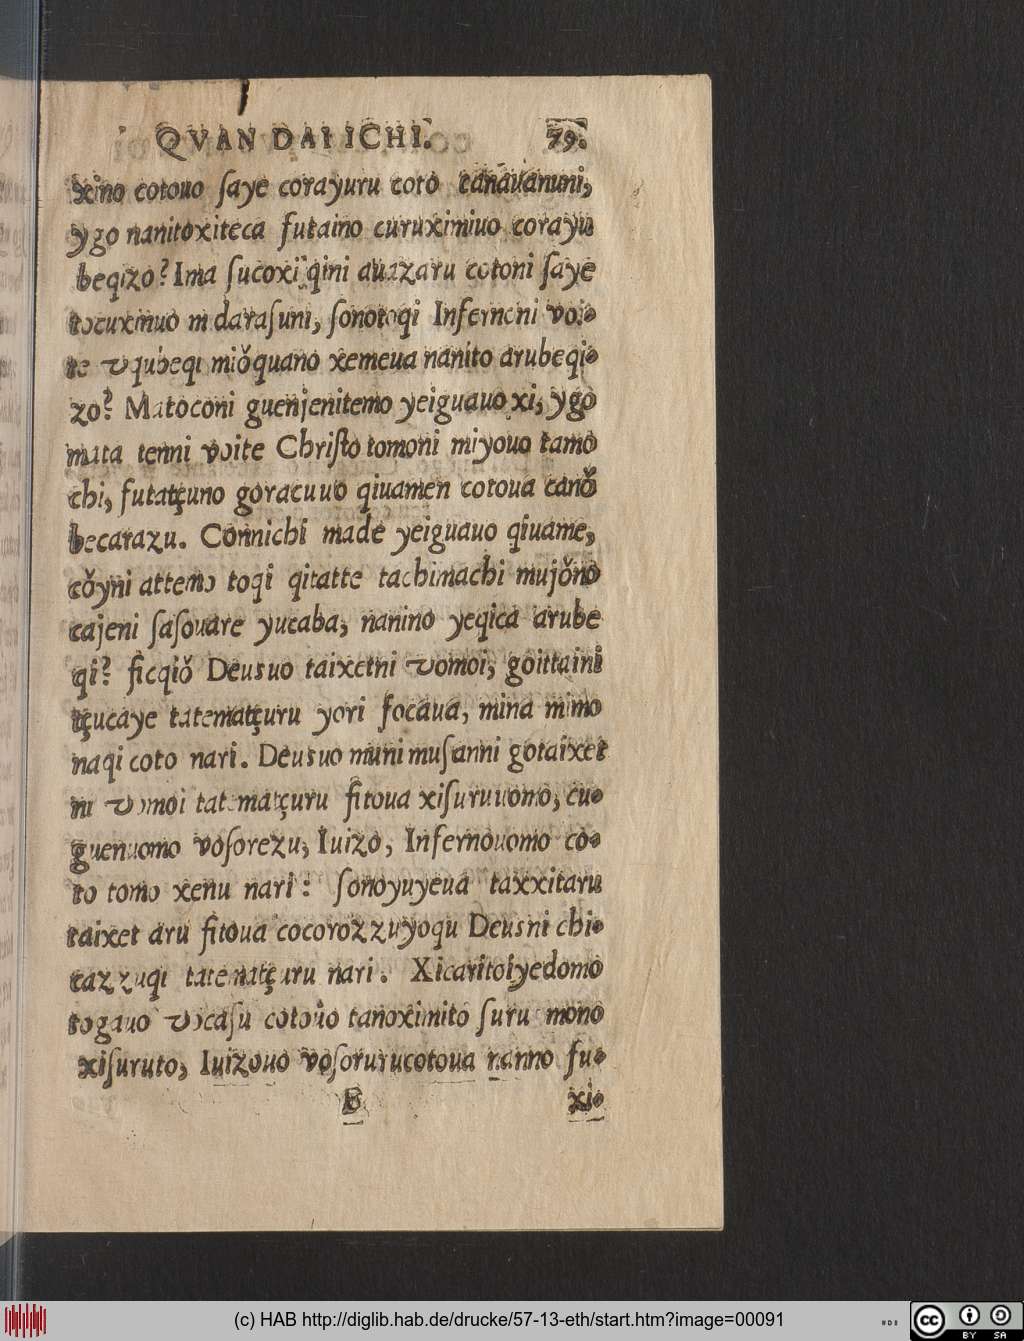 QVAN DAI ICHI. 79.
xino cotouo ſaye corayuru coto canauanuni,
ygo nanitoxiteca futaino curuximiuo corayu
beqizo? Ima ſucoxi qini auazaru cotoni ſaye
tocuxinuo midaraſuni, ſonotoqi Infernoni voi⸗
te vqubeqi miǒquano xemeua nanito arubeqi⸗
zo? Matoconi guenjenitemo yeiguauo xi, ygo
mata tenni voite Chriſto tomoni miyouo tamo
chi, futatçuno goracuuo qiuamen cotoua canǒ
becarazu. Connichi made yeiguauo qiuame,
cǒyni attemo toqi qitatte tachimachi mujǒno
cajeni ſaſouare yucaba, nanino yeqica arube
qi? ficqiǒ Deusuo taixetni vomoi, goittaini
tçucaye tatematçuru yori focaua, mina mimo
naqi coto nari. Deusuo muni muſanni gotaixet
ni vomoi tatematçuru fitoua xiſuruuomo, cu⸗
guenuomo voſorezu, Iuizo, Infernouomo co⸗
to tomo xenu nari: ſonoyuyeua taxxitaru
taixet aru fitoua cocorozzuyoqu Deusni chi⸗
cazzuqi tatematçuru nari. Xicaritoiyedomo
togauo vocaſu cotouo tanoximito ſuru mono
xiſuruto, Iuizouo voſorurucotoua nanno fu⸗
B xi⸗
(c) HAB http://diglib.hab.de/drucke/57-13-eth/start.htm?image=00091
cc BY SA